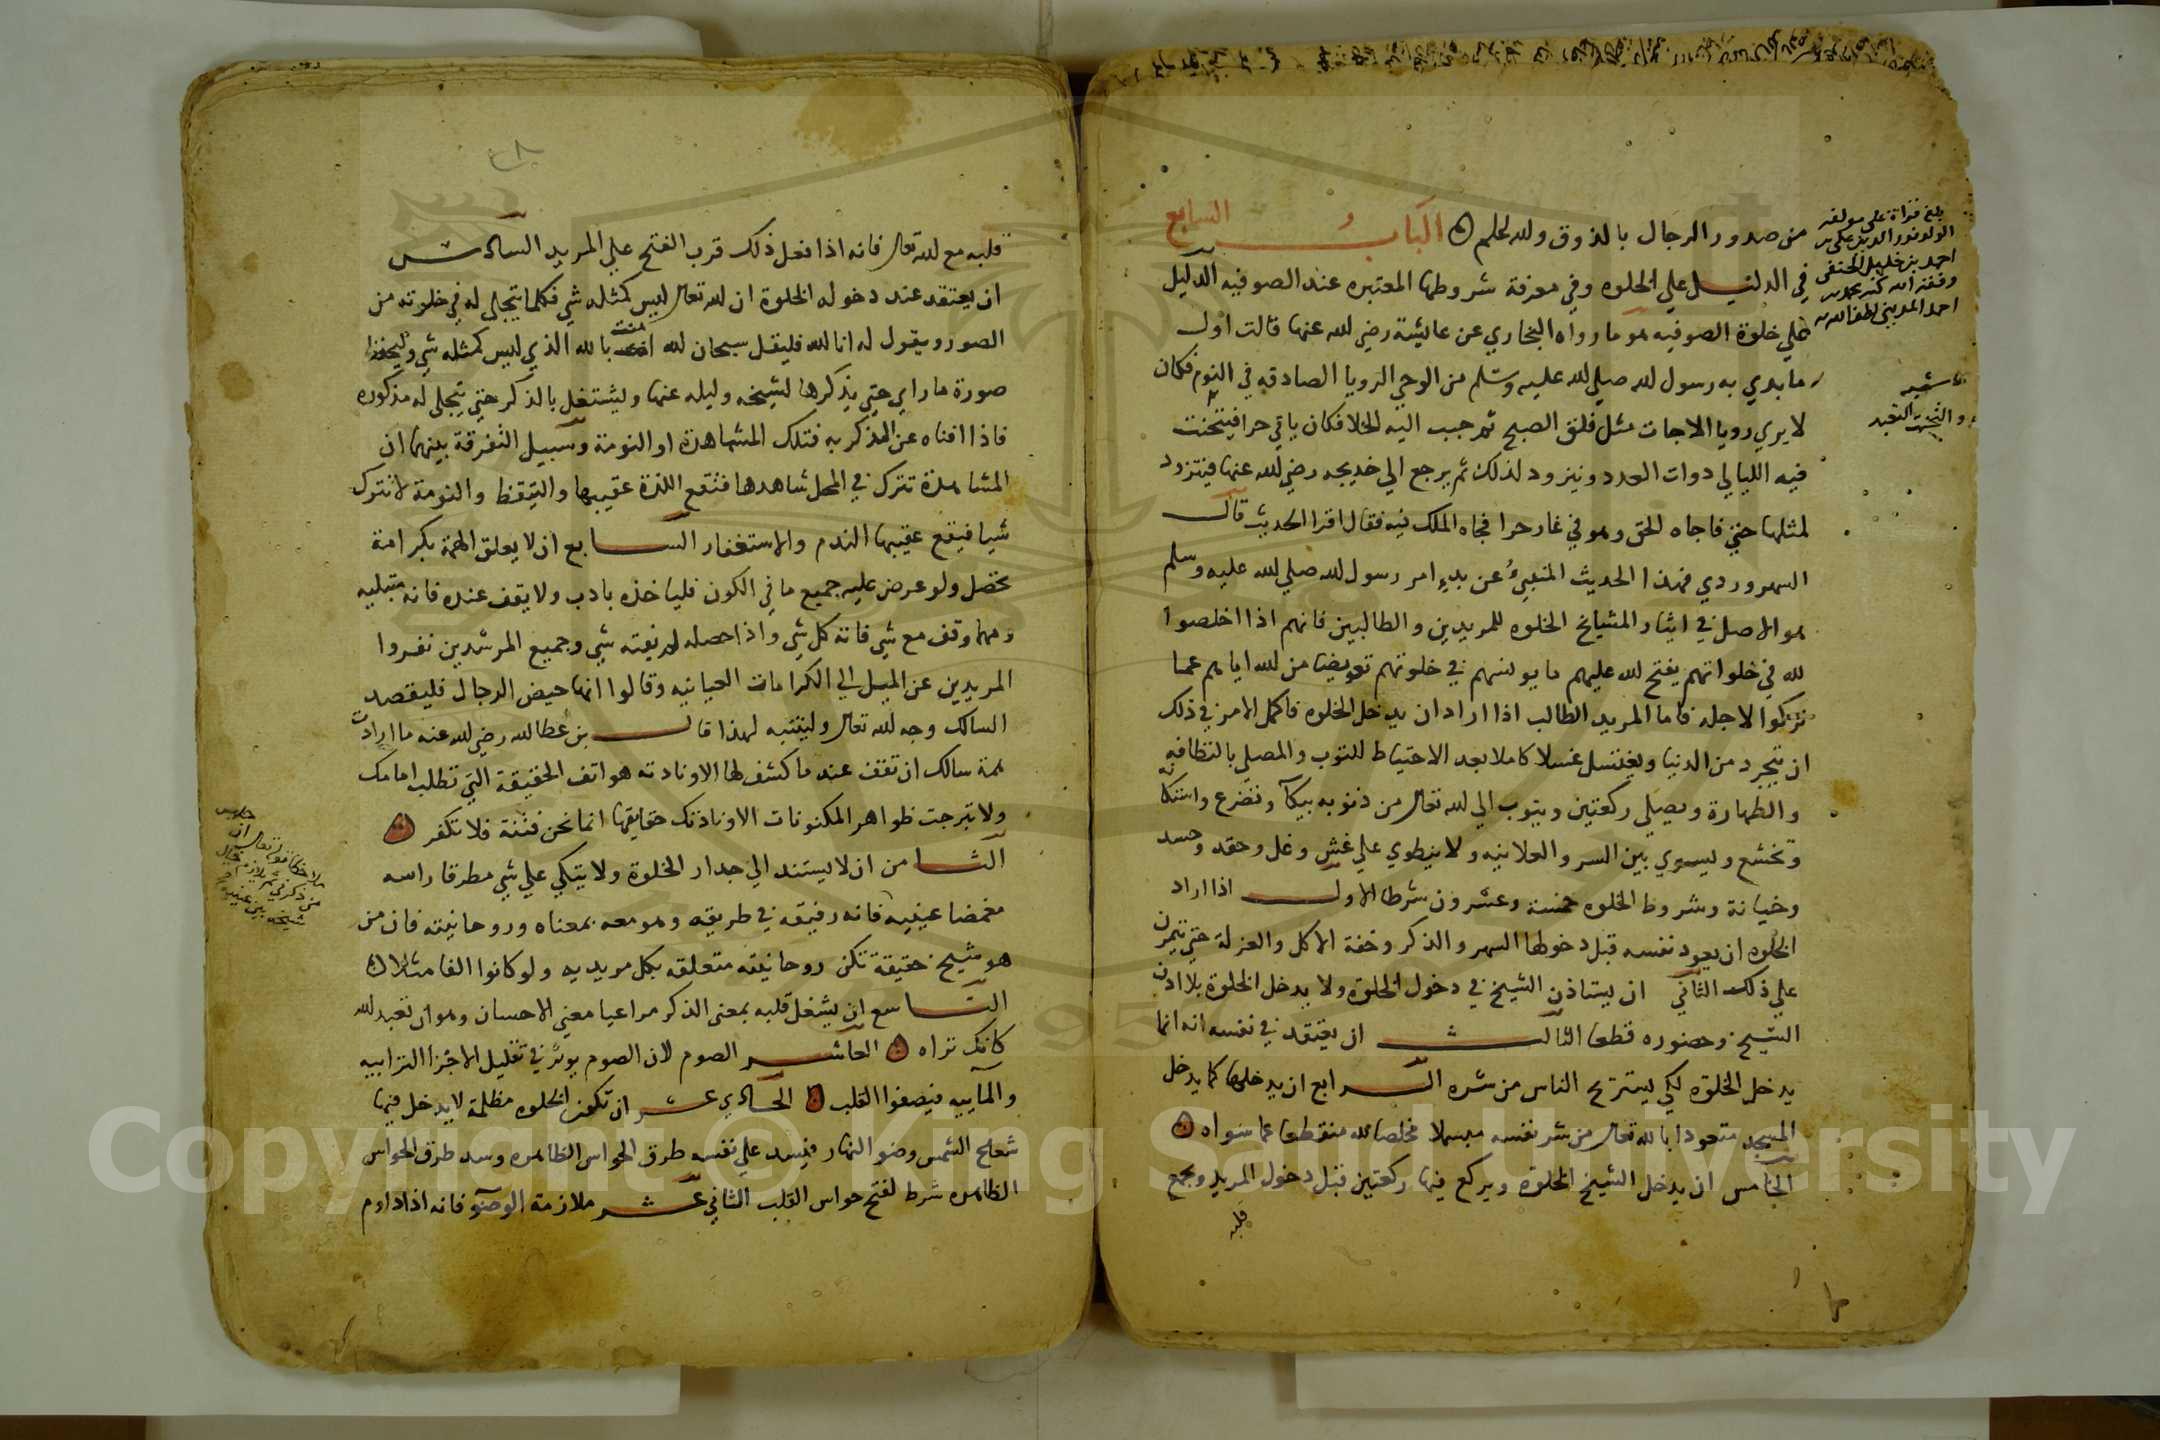 من صدور الرجال بالذوق والله اعلم الباب السابع
في الدليل علي الخلوه وفي معرفة شروطها المعتبره عند الصوفيه الدليل
علي خلوة الصوفيه هو ما رواه البخاري عن عايشة رضي الله عنها قالت اول
ما بدي به رسول الله صلي الله عليه وسلم من الوحي الرويا الصادقه في النوم فكان
لا يري رويا الا جات مثل فلق الصبح ثم حبب اليه الخلا فكان ياتي حرا فيتحنث
فيه الليالي دوات العدد ويتزود لذلك ثم يرجع الي خديجه رضي الله عنها فيتزود
لمثلها حتي فاجاه الحق وهو في غار حرا فجاه الملك فيه فقال اقرا الحديث قال
السهروردي فهذا الحديث المنبيء عن بدء امر رسول الله صلي الله عليه وسلم
هو الاصل في ايثار المشايخ الخلوه للمريدين والطالبين فانهم اذا اخلصوا
لله في خلواتهم يفتح الله عليهم ما يونسهم في خلوتهم تعويضا من الله اياهم عما
تركوا لاجله فاما المريد الطالب اذا اراد ان يدخل الخلوه فاكمل الامر في ذلك
ان يتجرد من الدنيا ويغتسل غسلا كاملا بعد الاحتياط للثوب والمصلي بالنظافه
والطهارة ويصلي ركعتين ويتوب الي الله تعالى من ذنوبه ببكآ وتضرع واستكانه
وتخشع ويسوي بين السر والعلانيه ولا ينطوي علي غش وغل وحقد وحسد
وخيانة وشروط الخلوه خمسة وعشرون شرطا الاول اذا اراد
الخلوه ان يعود نفسه قبل دخولها السهر والذكر وخفة الاكل والعزلة حتي يتمرن
علي ذلك الثاني ان يستاذن الشيخ في دخول الخلوة ولا يدخل الخلوة بلا اذن
الشيخ وحضوره قطعا الثالث ان يعتقد في نفسه انه انما
يدخل الخلوة لكي يستريح الناس من شره الرابع ان يدخلها كما يدخل
المسجد متعوذا بالله تعالى من شر نفسه مبسملا مخلصا لله منقطعا عما سواه
الخامس ان يدخل الشيخ الخلوة ويركع فيها ركعتين قبل دخول المريد ويجمع
قلبه
بلغ قراة علي مولفه
الولد نور الدين علي بن
احمد بن خليل الحنفي
وفقه الله كتبه محمد بن
احمد المديني لطف الله به
حاشيه
والتحنث التعبد
قلبه مع الله تعالى فانه اذا فعل ذلك قرب الفتح علي المريد السادس
ان يعتقد عند دخوله الخلوة ان الله تعالى ليس كمثله شي فكلما يتجلي له في خلوته من
الصور ويقول له انا الله فليقل سبحان الله امنت بالله الذي ليس كمثله شي وليحفظ
صورة ما راي حتي يذكرها لشيخه وليله عنها وليشتغل بالذكر حتي يتجلي له مذكوره
فاذا افناه عن الذكر به فتلك المشاهدة او النومة وسبيل التفرقة بينهما ان
المشاهدة تترك في المحل شاهدها فتقع اللذة عقيبها والتيقظ والنومة لا تترك
شيا فيقع عقيبها الندم والاستغفار السابع ان لا يعلق الهمة بكرامة
تحصل ولو عرض عليه جميع ما في الكون فلياخذه بادب ولا يقف عنده فانه مبتليه
ومهما وقف مع شي فاته كل شي واذا حصله لم يفته شي وجميع المرشدين نفروا
المريدين عن الميل الي الكرامات العيانيه وقالوا انها حيض الرجال فليقصد
السالك وجه الله تعالى ولينتبه لهذا قال بن عطا الله رضي الله عنه ما ارادت
همة سالك ان تقف عند ما كشف لها الا ونادته هواتف الحقيقة التي تطلب امامك
ولا تبرجت ظواهر المكنونات الا ونادتك حقايقها انما نحن فتنة فلا تكفر
الثامن ان لا يستند الي جدار الخلوة ولا يتكي علي شي مطرقا راسه
مغمضا عينيه فانه رفيقه في طريقه وهو معه بمعناه وروحانيته فان من
هو شيخ حقيقة تكن روحانيته متعلقه بكل مريديه ولو كانوا الفا مثلا
التاسع ان يشغل قلبه بمعنى الذكر مراعيا معني الاحسان وهو ان تعبد الله
كانك تراه العاشر الصوم لان الصوم يوثر في تقليل الاجزا الترابيه
والمآييه فيصفوا القلب الحادي عشر ان تكون الخلوه مظلمة لا يدخل فيها
شعاع الشمس وضو النهار فيسد علي نفسه طرق الحواس الظاهره وسد طرق الحواس
الظاهره شرط لفتح حواس القلب الثاني عشر ملازمة الوضو فانه اذا داوم
Copyright © King Saud University